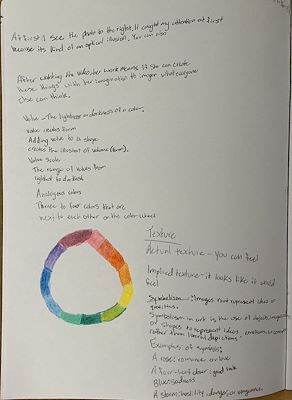 At first I see the photo to the right, it caught my attention at first
because its kind of an optical illusion. You can also
After watching the video, her work means if she can create
these things with her imagination to imagen what everyone
else can think.
Value - The lightness or darkness of a color.
value creates form
Adding value to a shape
creates the illusion of volume (form).
Value scale
The range of values from
lightest to darkest
Analogous colors
Three to four colors that are
next to each other on the color wheel
Texture
Actual texture - you can feel
Implied texture - it looks like it would
feel
Symbolism: Images that represent ideas or
qualities.
Symbolism in art is the use of objects,
or shapes to represent ideas, emotions, or
rather than literal depictions
Examples of symbols:
A rose: romance or love
A four-leaf clover: good luck
Blue: sadness
A storm: hostility, danger, or vengeance